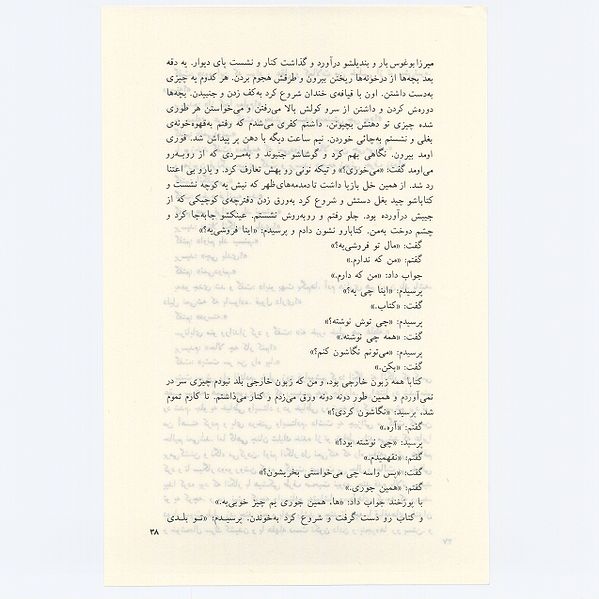 میرزابوغوس بار و بندیلشو درآورد و گذاشت کنار و نشست پای دیوار. یه دفه
بعد بچه‌ها از درخونه‌ها ریختن بیرون و طرفش هجوم بردن. هر کدوم یه چیزی
به‌دست داشتن. اون با قیافه‌ی خندان شروع کرد به‌کف زدن و جنبیدن. بچه‌ها
دوره‌ش کردن و داشتن از سرو کولش بالا می‌رفتن و می‌خواستن هر طوری
شده چیزی تو دهنش بچپونن. داشتم کفری می‌شدم که رفتم به‌قهوه‌خونه‌ی
بغلی و نشستم به‌چائی خوردن. نیم ساعت دیگه با دهن پر پیداش شد. قوزی
اومد بیرون. نگاهی بهم کرد و گوشاشو جنبوند و به‌مردی که از روبه‌رو
می‌اومد گفت: «می‌خوری؟» و تیکه نونی رو بهش تعارف کرد. و یارو بی اعتنا
رد شد. از همین خل بازیا داشت تا دمدمه‌های ظهر که نبش یه کوچه نشست و
کتاباشو چید بغل دستش و شروع کرد به‌ورق زدن دفترچه‌ی کوچیکی که از
جیبش درآورده بود. جلو رفتم و روبه‌روش نشستم. عینکشو جابه‌جا کرد و
چشم دوخت به‌من. کتابارو نشون دادم و پرسیدم: «اینا فروشی‌یه؟»
گفت: «مال تو فروشی‌یه؟»
گفتم: «من که ندارم.»
جواب داد: «من که دارم.»
پرسیدم: «اینا چی یه؟»
گفت: «کتاب.»
پرسیدم: «چی توش نوشته؟»
گفت: «همه چی نوشته.»
پرسیدم: «می‌تونم نگاشون کنم؟»
گفت: «بکن.»
کتابا همه زبون خارجی بود، و من که زبون خارجی بلد نبودم چیزی سر در
نمی‌آوردم و همین طور دونه دونه ورق می‌زدم و کنار می‌ذاشتم. تا کارم تموم
شد. پرسید: «نگاشون کردی؟»
گفتم: «آره.»
پرسید: «چی نوشته بود؟»
گفتم: «نفهمیدم.»
گفت: «پس واسه چی می‌خواستی بخریشون؟»
گفتم: «همین جوری.»
با پوزخند جواب داد: «ها، همین جوری یم چیز خوبی‌یه.»
و کتاب رو دست گرفت و شروع کرد به‌خوندن. پرسیدم: «تو بلدی
۳۸